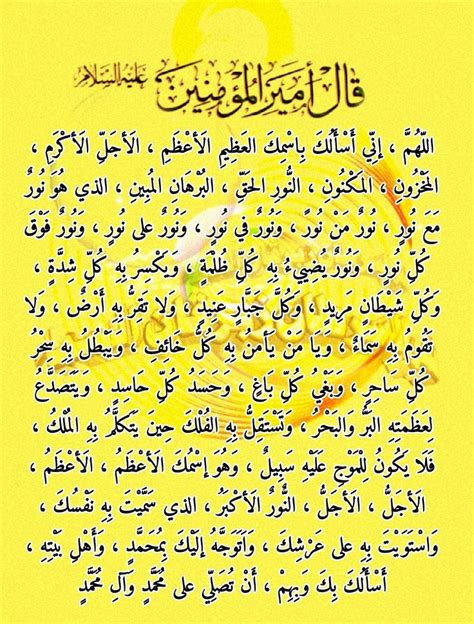 قال أمير المؤمنين عليه السلام
اللّهُمَّ ، إنّي أَسْأَلُكَ بِاسْمِكَ العَظِيمِ الأَعْظَمِ ، الأَجلِّ الأَكْرَمِ ،
المَخْزُونِ ، المَكْنُونِ ، النُّورِ الحَقِّ ، البُرْهَانِ المُبِينِ ، الذي هُوَ نُورٌ
مَعَ نُورٍ ، نُورٌ مَنْ نُورٌ ، وَنُورٌ في نُورٍ ، وَنُورٌ على نُورٍ ، وَنُورٌ فَوْقَ
كُلِّ نُورٍ ، وَنُورٌ يُضِييءُ بِهِ كُلِّ ظُلْمَةٍ ، وَيَكْسِرُ بِهِ كُلَّ شِدَّةٍ ،
وَكُلَّ شَيْطَانٍ مرِيدٍ ، وَكُلَّ جَبَّارٍ عنِيدٍ ، وَلا تَقرُّ بِهِ أَرْضٌ ، وَلا
تَقُومُ بِهِ سَمَاءٌ ، ويَا مَنْ يَأمَنُ بِهِ كُلُّ خَائفٍ ، وَيَبْطُلُ بِهِ سِحْرُ
كُلِّ ساحرٍ ، وَبَغْيُ كُلِّ بَاغٍ ، وَحَسَدُ كُلِّ حاسدٍ ، وَيَتَصَدَّعُ
لِعَظَمَتِه البَرُّ وَالبَحْرُ ، وَتَسْتَقِلُّ بِهِ الفُلْكَ حِينَ يَتَكلَّمُ بِهِ المُلْكُ ،
فَلَا يَكُونُ لِلْمَوْجِ عَلَيْهِ سَبِيلٌ ، وَهُوَ إسْمُكَ الأَعْظَمُ ، الأَعْظَمُ ،
الأَجَلُّ ، الأَجَلُّ ، النُّورُ الأَكْبَرُ ، الذي سَمَّيْتَ بِهِ نَفْسُكَ ،
وَاسْتَوَيْتَ بِهِ على عَرْشِكَ ، وَأَتَوَجَّهُ إلَيْكَ بِمُحَمدٍ ، وَأَهْلِ بَيْتِهِ ،
أَسْأَلُكَ بِكَ وَبِهِمْ ، أَنْ تُصَلِّي على مُحَمَّدٍ وَآلِ مُحَمَّدٍ